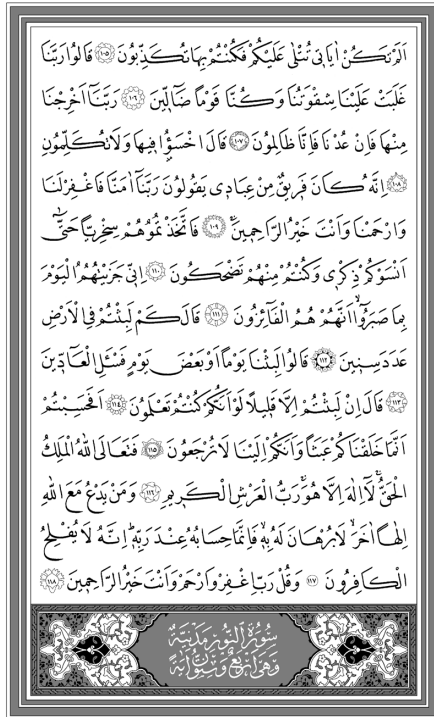 اَلَمْ تَكُنْ اٰيَاتٖي تُتْلٰى عَلَيْكُمْ فَكُنْتُمْ بِهَا تُكَذِّبُونَ ﴿١٠٥﴾ قَالُوا رَبَّنَا
غَلَبَتْ عَلَيْنَا شِقْوَتُنَا وَكُنَّا قَوْمًا ضَٓالّٖينَ ﴿١٠٦﴾ رَبَّنَٓا اَخْرِجْنَا
مِنْهَا فَاِنْ عُدْنَا فَاِنَّا ظَالِمُونَ ﴿١٠٧﴾ قَالَ اخْسَؤُ۫ا فٖيهَا وَلَا تُكَلِّمُونِ
﴿١٠٨﴾ اِنَّهُ كَانَ فَرٖيقٌ مِنْ عِبَادٖي يَقُولُونَ رَبَّنَٓا اٰمَنَّا فَاغْفِرْ لَنَا
وَارْحَمْنَا وَاَنْتَ خَيْرُ الرَّاحِمٖينَ ﴿١٠٩﴾ فَاتَّخَذْتُمُوهُمْ سِخْرِيًّا حَتّٰٓى
اَنْسَوْكُمْ ذِكْرٖي وَكُنْتُمْ مِنْهُمْ تَضْحَكُونَ ﴿١١٠﴾ اِنّٖي جَزَيْتُهُمُ الْيَوْمَ
بِمَا صَبَرُٓوا اَنَّهُمْ هُمُ الْفَٓائِزُونَ ﴿١١١﴾ قَالَ كَمْ لَبِثْتُمْ فِي الْاَرْضِ
عَدَدَ سِنٖينَ ﴿١١٢﴾ قَالُوا لَبِثْنَا يَوْمًا اَوْ بَعْضَ يَوْمٍ فَسْـَٔلِ الْعَٓادّٖينَ
﴿١١٣﴾ قَالَ اِنْ لَبِثْتُمْ اِلَّا قَلٖيلًا لَوْ اَنَّكُمْ كُنْتُمْ تَعْلَمُونَ ﴿١١٤﴾ اَفَحَسِبْتُمْ
اَنَّمَا خَلَقْنَاكُمْ عَبَثًا وَاَنَّكُمْ اِلَيْنَا لَا تُرْجَعُونَ ﴿١١٥﴾ فَتَعَالَى اللّٰهُ الْمَلِكُ
الْحَقُّ لَٓا اِلٰهَ اِلَّا هُوَ رَبُّ الْعَرْشِ الْكَرٖيمِ ﴿١١٦﴾ وَمَنْ يَدْعُ مَعَ اللّٰهِ
اِلٰهًا اٰخَرَ لَا بُرْهَانَ لَهُ بِهٖ فَاِنَّمَا حِسَابُهُ عِنْدَ رَبِّهٖ اِنَّهُ لَا يُفْلِحُ
الْكَافِرُونَ ﴿١١٧﴾ وَقُلْ رَبِّ اغْفِرْ وَارْحَمْ وَاَنْتَ خَيْرُ الرَّاحِمٖينَ ﴿١١٨﴾
سُورَةُ النُّورِ مَدَنِيَّةٌ
وَهِيَ اَرْبَعٌ وَسِتُّونَ اٰيَةً